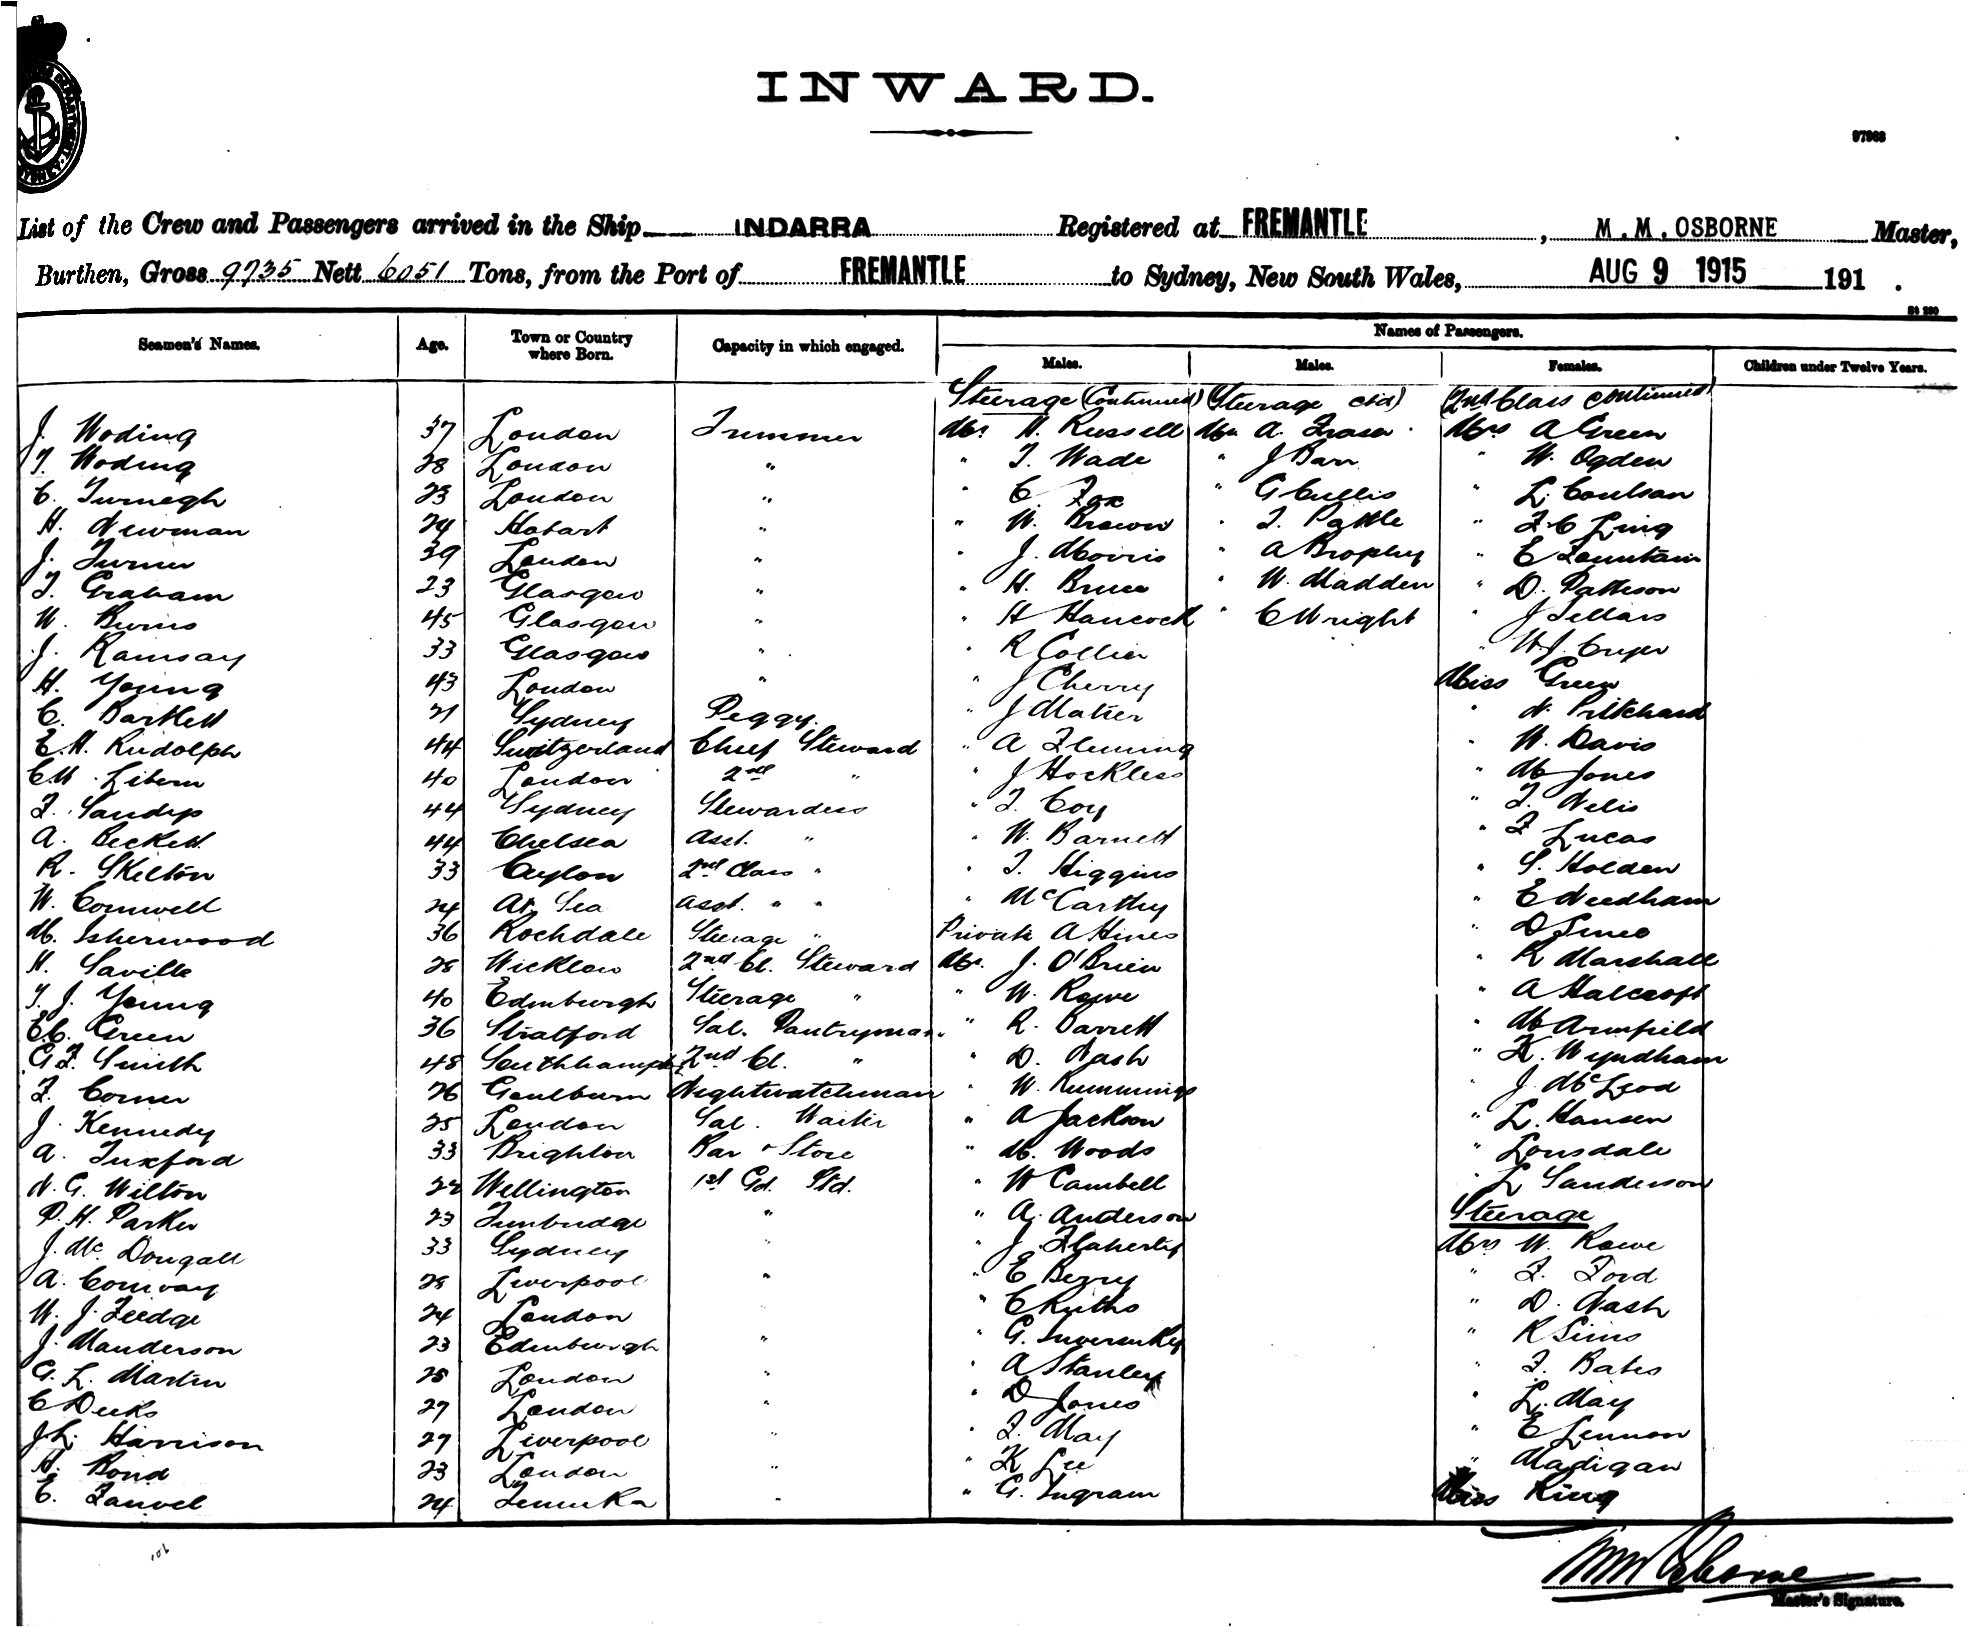 INWARD.
97963
List of the Crew and Passengers arrived in the Ship INDARRA Registered at FREMANTLE, M. M. OSBORNE Master,
Burthen, Gross 9735 Nett 6051 Tons, from the Port of FREMANTLE to Sydney, New South Wales, AUG 9 1915 191 .
Names of Passengers.
Seamen's Names. Age. Town or Country where Born. Capacity in which engaged. Males. Males. Females. Children under Twelve Years.
Steerage (Continued) (Steerage ctd) (2nd Class continued)
J. Woding 37 London Trimmer Mr. H. Russell Mr A. Fraser Mrs A Green
T. Woding 28 London " " T. Wade " J Barr " W. Ogden
C. Turnegh 23 London " " C. Fox " G Cullis " L. Coulson
H. Newman 24 Hobart " " W. Brown " T. Pattle " F. C Ling
J. Turner 39 London " " J. Morris " A Brophy " E Fountain
T. Graham 23 Glasgow " " H. Bruce " W. Madden " D. Patteson
W. Burns 45 Glasgow " " H Hancock " C Wright " J Sellars
J. Ramsay 33 Glasgow " " R Collier " W. J. Cryer
H. Young 43 London " " J Cherry Miss Green
C. Bartlett 21 Sydney Peggy. " J Matier " N. Pritchard
E. H. Rudolph 44 Switzerland Chief Steward " A Fleming " W. Davis
C W. Libern 40 London 2nd " " J Hockless " M Jones
F. Sandys 44 Sydney Stewardess " T. Coy " T. Nelis
A. Beckett 44 Chelsea Asst. " " W. Barnett " F Lucas
R. Skelton 33 Ceylon 2nd Class " " T. Higgins " S. Holden
W. Cornwell 24 At Sea Asst. " " " McCarthy " E Needham
M. Isherwood 36 Rochdale Steerage " Private A Hines " D
H. Saville 28 Wicklow 2nd Cl. Steward Mr. J. O'Brien " R Marshall
T. J. Young 40 Edinburgh Steerage " " W. Rowe " A Halcroft
E. C. Green 36 Stratford Sal. Pantryman " R. Barrett " M Armfield
G F. Smith 48 Southhampt 2nd Cl. " " D. Nash " K. Wyndham
F. Corner 26 Goulburn Nightwatchman " W. Kummings " J. McLeod
J. Kennedy 25 London Sal. Waiter " A Jackson " L. Hansen
A. Tuxford 33 Brighton Bar & Store " M. Woods " Lonsdale
N. G. Wilton 22 Wellington 1st Gd. Std. " W Cambell " L Sanderson
P. H. Parker 23 Tunbridge " " A. Anderson Steerage
J. Mc Dougall 33 Sydney " " J. Flaherty Mrs W. Rowe
A. Conway 28 Liverpool " " E Berry " F. Ford
W. J. Feedge 24 London " " C Ruths " D. Nash
J. Manderson 23 Edinburgh " " G. Inverurky " R Sims
G. L. Martin 28 London " " A Stanley " F. Bates
C Deeks 29 London " " D Jones " L. May
J. L. Harrison 29 Liverpool " " F. May " E Lennon
H. Bond 23 London " " K Lee " Madigan
E. Fauvel 24 Temuka " " G. Ingram Miss King
Master's Signature.